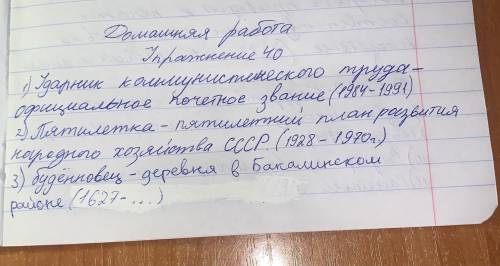 Домашняя работа
Упражнение 40
1) Ударник коммунистического труда-
официальное почетное звание (1984-1991)
2) Пятилетка - пятилетний план развития
народного хозяйства СССР. (1928 - 1970г.)
3) будённовец - деревня в Бакалинском
районе (1627- ...)